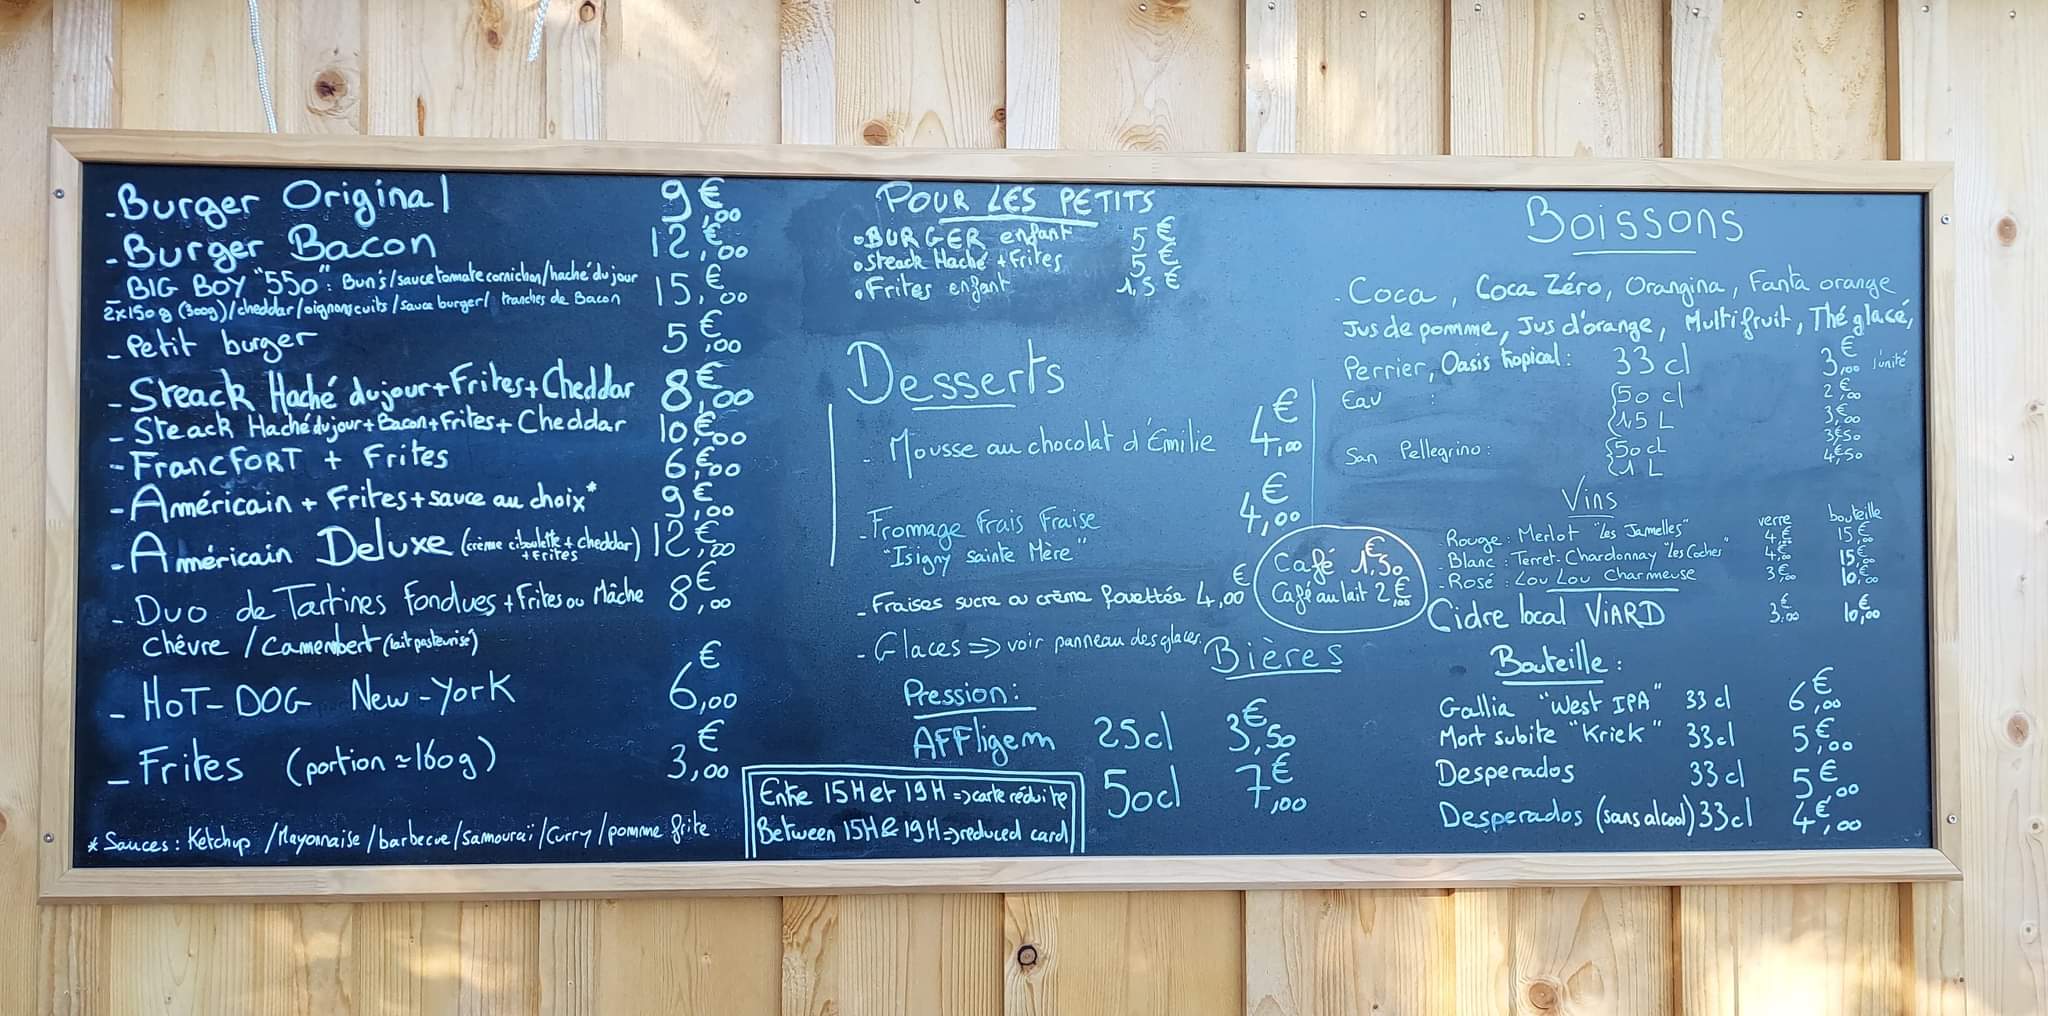 - Burger Original 9€,00
- Burger Bacon 12€,00
- BIG BOY "550": Bun's/sauce tomate cornichon/haché du jour 15€,00
2x150g (300g)/cheddar/oignons cuits/sauce burger/ tranches de Bacon
- Petit burger 5€,00
- Steack Haché du jour + Frites + Cheddar 8€,00
- Steack Haché du jour + Bacon + Frites + Cheddar 10€,00
- FrancFORT + Frites 6€,00
- Américain + Frites + sauce au choix* 9€,00
- Américain Deluxe (crème ciboulette + cheddar + Frites) 12€,00
- Duo de Tartines fondues + Frites ou Mâche 8€,00
Chêvre / Camembert (lait pasteurisé)
- HOT-DOG New-York 6€,00
- Frites (portion ≃ 160g) 3€,00
* Sauces: Ketchup /Mayonnaise/barbecue/Samouraï/Curry/pomme frite
POUR LES PETITS
• BURGER enfant 5€
• Steack Haché + Frites 5€
• Frites enfant 1,5€
Desserts
- Mousse au chocolat d'Emilie 4€,00
- Fromage Frais Fraise 4€,00
"Isigny Sainte Mère"
- Fraises sucre ou crème fouettée 4€,00
- Glaces => voir panneau des glaces.
Café 1€,50
Café au lait 2€,00
Bières
Pression:
AFFligem 25cl 3€,50
50cl 7€,00
Entre 15H et 19H => carte réduite
Between 15H & 19H => reduced card
Boissons
- Coca, Coca Zéro, Orangina, Fanta orange
Jus de pomme, Jus d'orange, Multifruit, Thé glacé,
Perrier, Oasis tropical: 33 cl 3€,00 l'unité
Eau : 50 cl 2€,00
1,5 L 3€,00
San Pellegrino: 50cl 3€50
1 L 4€,50
Vins
verre bouteille
- Rouge: Merlot "Les Jamelles" 4€,00 15€,00
- Blanc: Terret-Chardonnay "Les Coches" 4€,00 15€,00
- Rosé: Lou Lou Charmeuse 3€,00 10€,00
Cidre local VIARD 3€,00 10€,00
Bouteille:
Gallia "West IPA" 33 cl 6€,00
Mort subite "Kriek" 33cl 5€,00
Desperados 33 cl 5€,00
Desperados (sans alcool) 33cl 4€,00